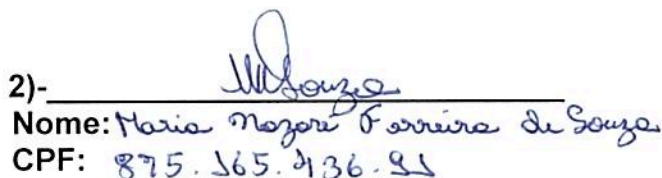 2)- MSouza
Nome: Maria Nazaré Ferreira de Souza
CPF: 875.165.436.91